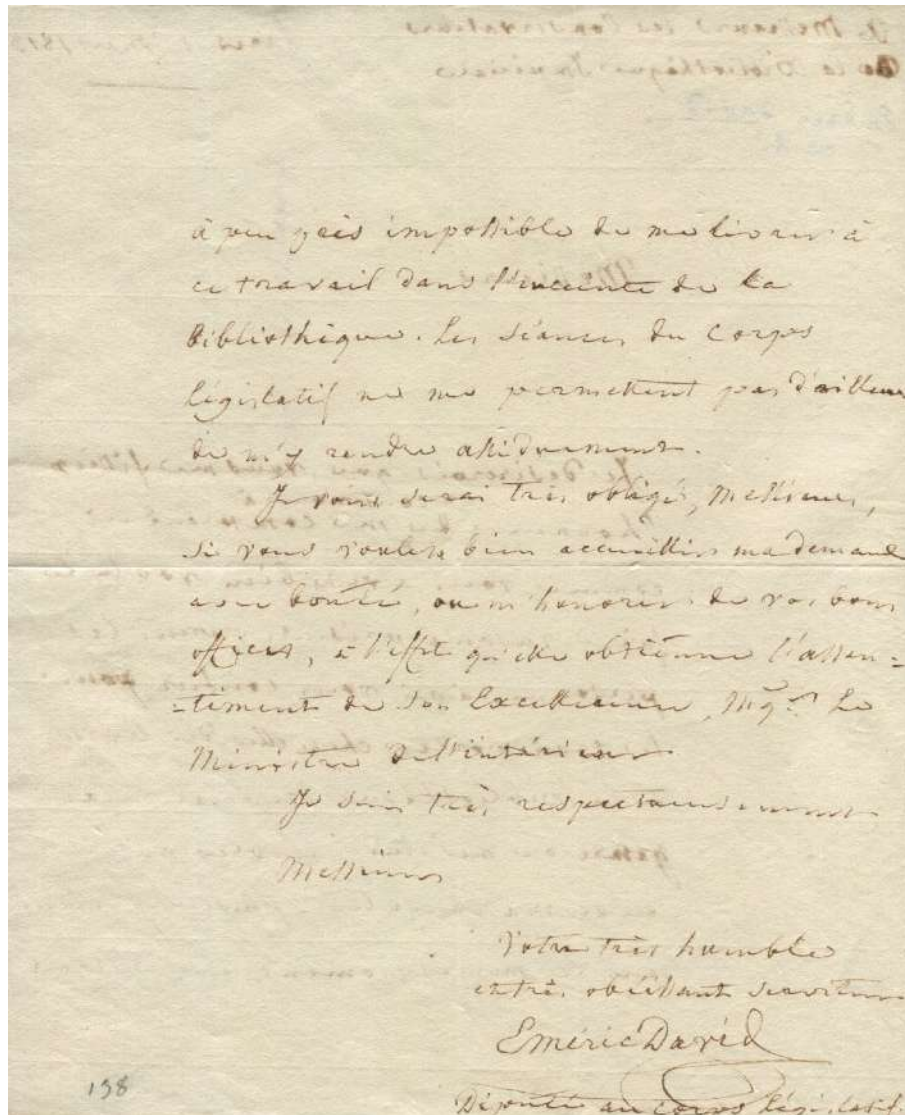 à peu près impossible de me livrer à
ce travail dans l'enceinte de la
Bibliothèque. Les séances du Corps
législatif ne me permettent pas d'ailleurs
de m'y rendre assiduement.
Je vous serai très obligé, Messieurs,
si vous voulez bien accueillir ma demande
avec bonté, ou m'honorer de vos bons
offices, à l'effet qu'elle obtienne l'assen-
-timent de Son Excellence, Mgr. Le
Ministre de l'intérieur.
Je suis très respectueusement
Messieurs
Votre très humble
et très obéissant serviteur
Emeric David
Député au corps législatif
138